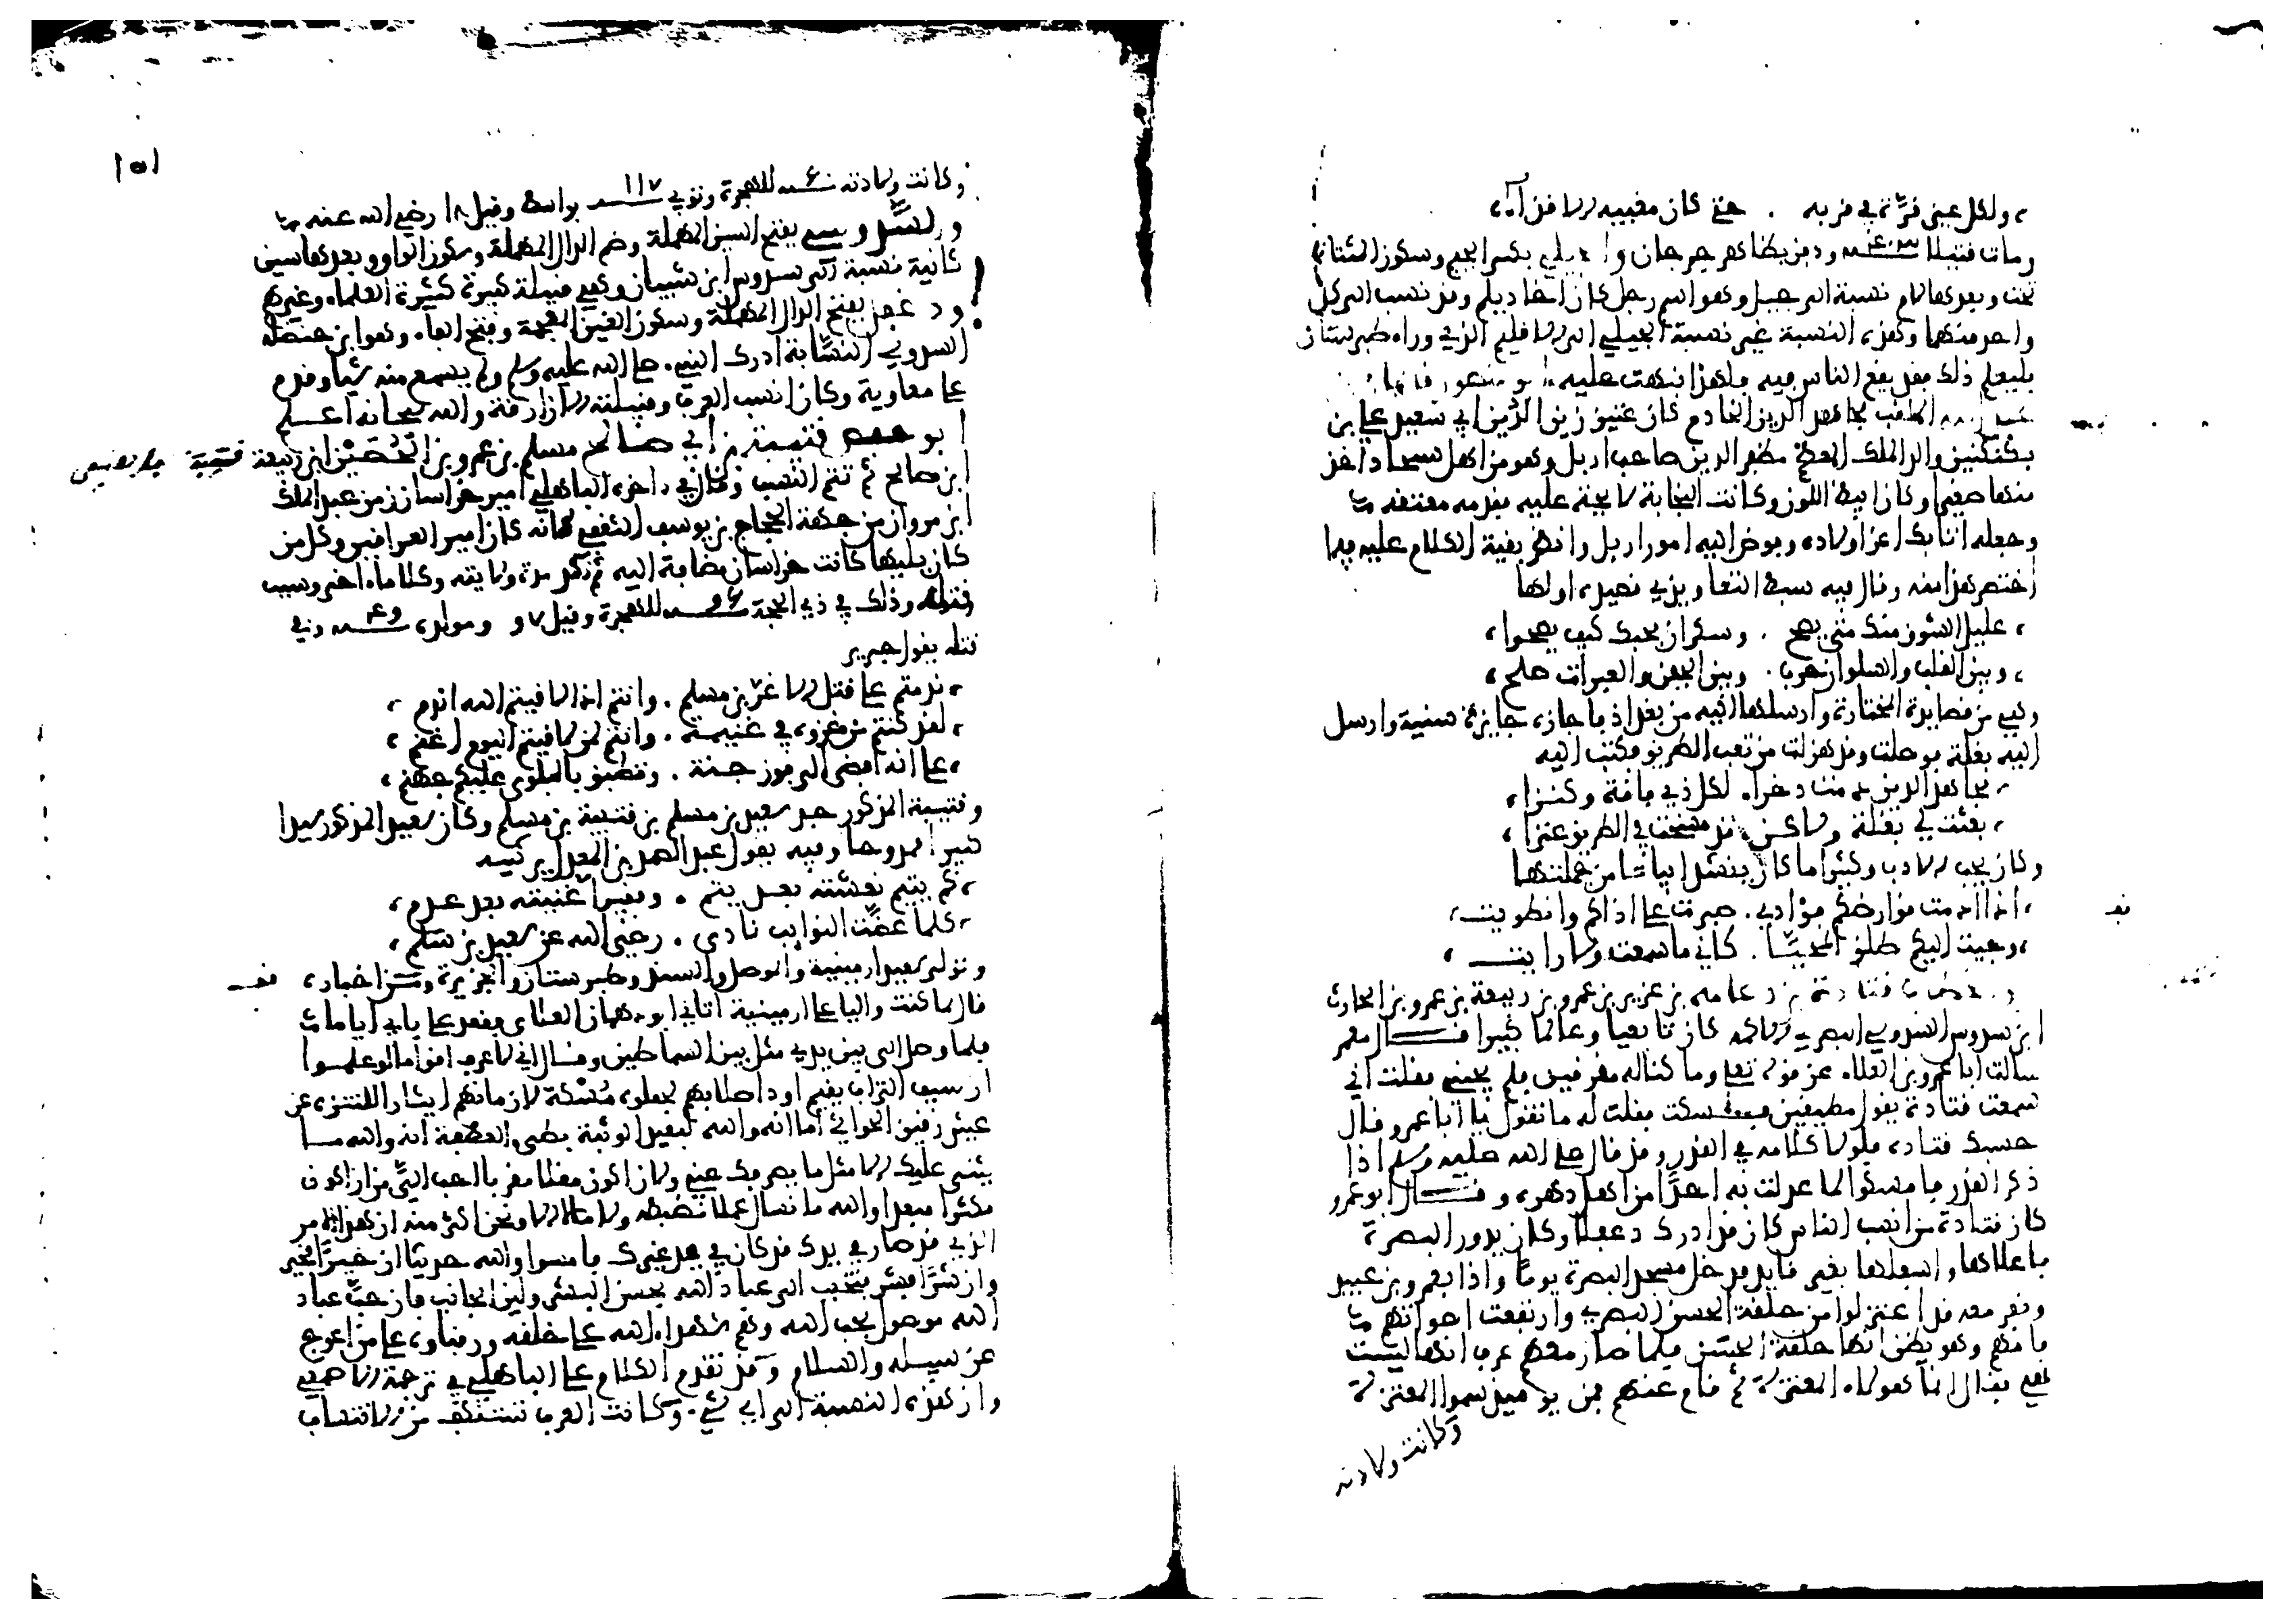 ولكل عين قرة في قربه . حتى كان مغيبه الاقذاء
ومات قتيلا سنة ودفن بظاهر جرجان والجيلي بكسر الجيم وسكون المثناة
تحت وبعدها لام نسبة الى جيل وهو اسم رجل كان اخا ديلم وقد نسب الى كل
واحد منهما وهذه النسبة غير نسبة الجيلي الى الاقليم الذي وراء طبرستان
فليعلم ذلك فقد يقع الناس فيه فلهذا نبهت عليه ابو منصور قايماز
بن عبد الله الملقب مجاهد الدين الخادم كان عتيق زين الدين ابي سعيد علي بن
بكتكين والد الملك المعظم مظفر الدين صاحب اربل وهو من اهل سجستان اخذ
منها صغيرا وكان ابيض اللون وكانت النجابة لايحة عليه فقدمه معتقه
وجعله اتابك اعز اولاده وفوض اليه امور اربل وانظر بقية الكلام عليه فيما
اختصر هذا منه وقال فيه سبط التعاويذي قصيدة اولها
عليل الشوق منك متى يصح . وسكران بحبك كيف يصحوا
وبين القلب والسلوان حرب . وبين الجفن والعبرات صلح
وهي من قصايده المختارة وارسلها اليه من بغداد فاجازه جايزة سنية وارسل
اليه بغلة فوصلت وقد هزلت من تعب الطريق فكتب اليه
مجاهد الدين دمت ذخرا . لكل ذي فاقة وكنزا
بعثت لي بغلة ولاكن . قد مسخت في الطريق عنزا
وكان يحب الادب وكثيرا ما كان ينشد ابياتا من جملتها
اذا ادمت قوارضكم فؤادي . صبرت على اذاكم وانطويت
وجيت اليكم طلق المحيا . كاني ما سمعت ولا رايت
قف
ابو الخطاب قتادة بن دعامة بن عزيز بن عمرو بن ربيعة بن عمرو بن الحارث
ابن سدوس السدوسي البصري الاكمه كان تابعيا وعالما كبيرا قال معمر
سالت ابا عمرو بن العلاء عن قوله تعلى وما كنا له مقرنين فلم يجبني فقلت اني
سمعت قتادة يقول مطيقين فسكت فقلت له ما تقول يا ابا عمرو فقال
حسبك قتادة فلولا كلامه في القدر وقد قال صلى الله عليه وسلم اذا
ذكر القدر فامسكوا لما عدلت به احدا من اهل دهره وقال ابو عمرو
كان قتادة من انسب الناس كان قد ادرك دغفلا وكان يدور البصرة
باعلاها واسفلها بغير قايد فدخل مسجد البصرة يوما واذا بعمرو بن عبيد
ونفر معه قد اعتزلوا من حلقة الحسن البصري وارتفعت اصواتهم
فامهم وهو يظن انها حلقة الحسن فلما صار معهم عرف انها ليست
هي فقال انما هولاء المعتزلة ثم قام عنهم فمن يوميذ سموا المعتزلة
وكانت ولادته
١٥١
وكانت ولادته سنة للهجرة وتوفي سنة ١١٧ بواسط وقيل ١٨ رضي الله عنه
والسدوسي بفتح السين المهملة وضم الدال المهملة وسكون الواو وبعدها سين
ثانية نسبة الى سدوس ابن شيبان وهي قبيلة كبيرة كثيرة العلماء وغيرهم
ودغفل بفتح الدال المهملة وسكون الغين المعجمة وفتح الفاء وهو ابن حنظلة
السدوسي النسابة ادرك النبي صلى الله عليه وسلم ولم يسمع منه شيا وقدم
على معاوية وكان انسب العرب وقتلته الازارقة والله سبحانه اعلم
ابو حفص قتيبة بن ابي صالح مسلم بن عمرو بن الحصين ابن ربيعة
قتيبة
ابن صالح ثم تتم النسب وقال في اخره الباهلي امير خراسان زمن عبد الملك
ابن مروان من جهة الحجاج بن يوسف الثقفي لانه كان امير العراقين وكل من
كان يليها كانت خراسان مضافة اليه ثم ذكر مدة ولايته وكلاما اخر وسبب
قتله وذلك في ذي الحجة سنة للهجرة وقيل ٩٧ ومولده سنة وفي
قتله يقول جرير
ندمتم على قتل الاغر بن مسلم . وانتم اذا لاقيتم الله اندم
لقد كنتم من غزوه في غنيمة . وانتم لمن لاقيتم اليوم مغنم
على انه افضى الى حور جنة . وتطبق بالبلوى عليكم جهنم
وقتيبة المذكور جد سعيد بن مسلم بن قتيبة بن مسلم وكان سعيد المذكور سيدا
كبيرا ممدوحا وفيه يقول عبد الصمد بن المعدل يرثيه
كم يتيم نعشته بعد يتم . وفقيرا غنيته بعد عدم
كلما عضت النوايب نادى . رضي الله عن سعيد بن سلم
وتولى سعيد ارمينية والموصل والسند وطبرستان والجزيرة ومن اخباره
قف
قال لما كنت واليا على ارمينية اتاني ابو دهمان الغلابي فقعد على بابي اياما
فلما وصل الى بين يدي مثل بين السماطين وقال اني لاعرف اقواما لو علموا
ان سف التراب يقيم اود اصلابهم لجعلوه مسكة لازماقهم ايثارا للتنزه عن
عيش رقيق الحواشي اما انه والله لبعيد الوثبة بطيء العطفة انه والله ما
يثني عليك الا مثل ما يصرفك عني ولان اكون مقلا مقربا احب الي من ان اكون
مكثرا مبعدا والله ما نسال عملا نضبطه ولا مالا الا ونحن اكثر منه ان هذا الامر
الذي قد صار في يدك قد كان في يد غيرك فامسوا والله حديثا ان خيرا فخير
وان شرا فشر فتحبب الى عباد الله بحسن البشر ولين الجانب فان حب عباد
الله موصول بحب الله وهم شهداء الله على خلقه ورقباوه على من اعوج
عن سبيله والسلام وقد تقدم الكلام على الباهلي في ترجمة الاصمعي
وان هذه النسبة الى اي شيء وكانت العرب تستنكف من الانتساب